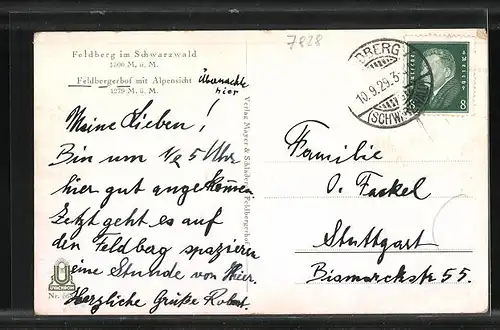 7828
Feldberg im Schwarzwald
1500 M. ü. M.
Feldbergerhof mit Alpensicht
1279 M. ü. M.
Übernachte
hier
Meine Lieben!
Bin um ½ 5 Uhr
hier gut angekommen
Jetzt geht es auf
den Feldberg spazieren
eine Stunde von hier.
Herzliche Grüße Robert.
Verlag Mayer &
Feldbergerhof
Nr.
DBERG
10.9.29.3
(SCHW
8
Familie
O. Fackel
Stuttgart
Bismarckstr 55.